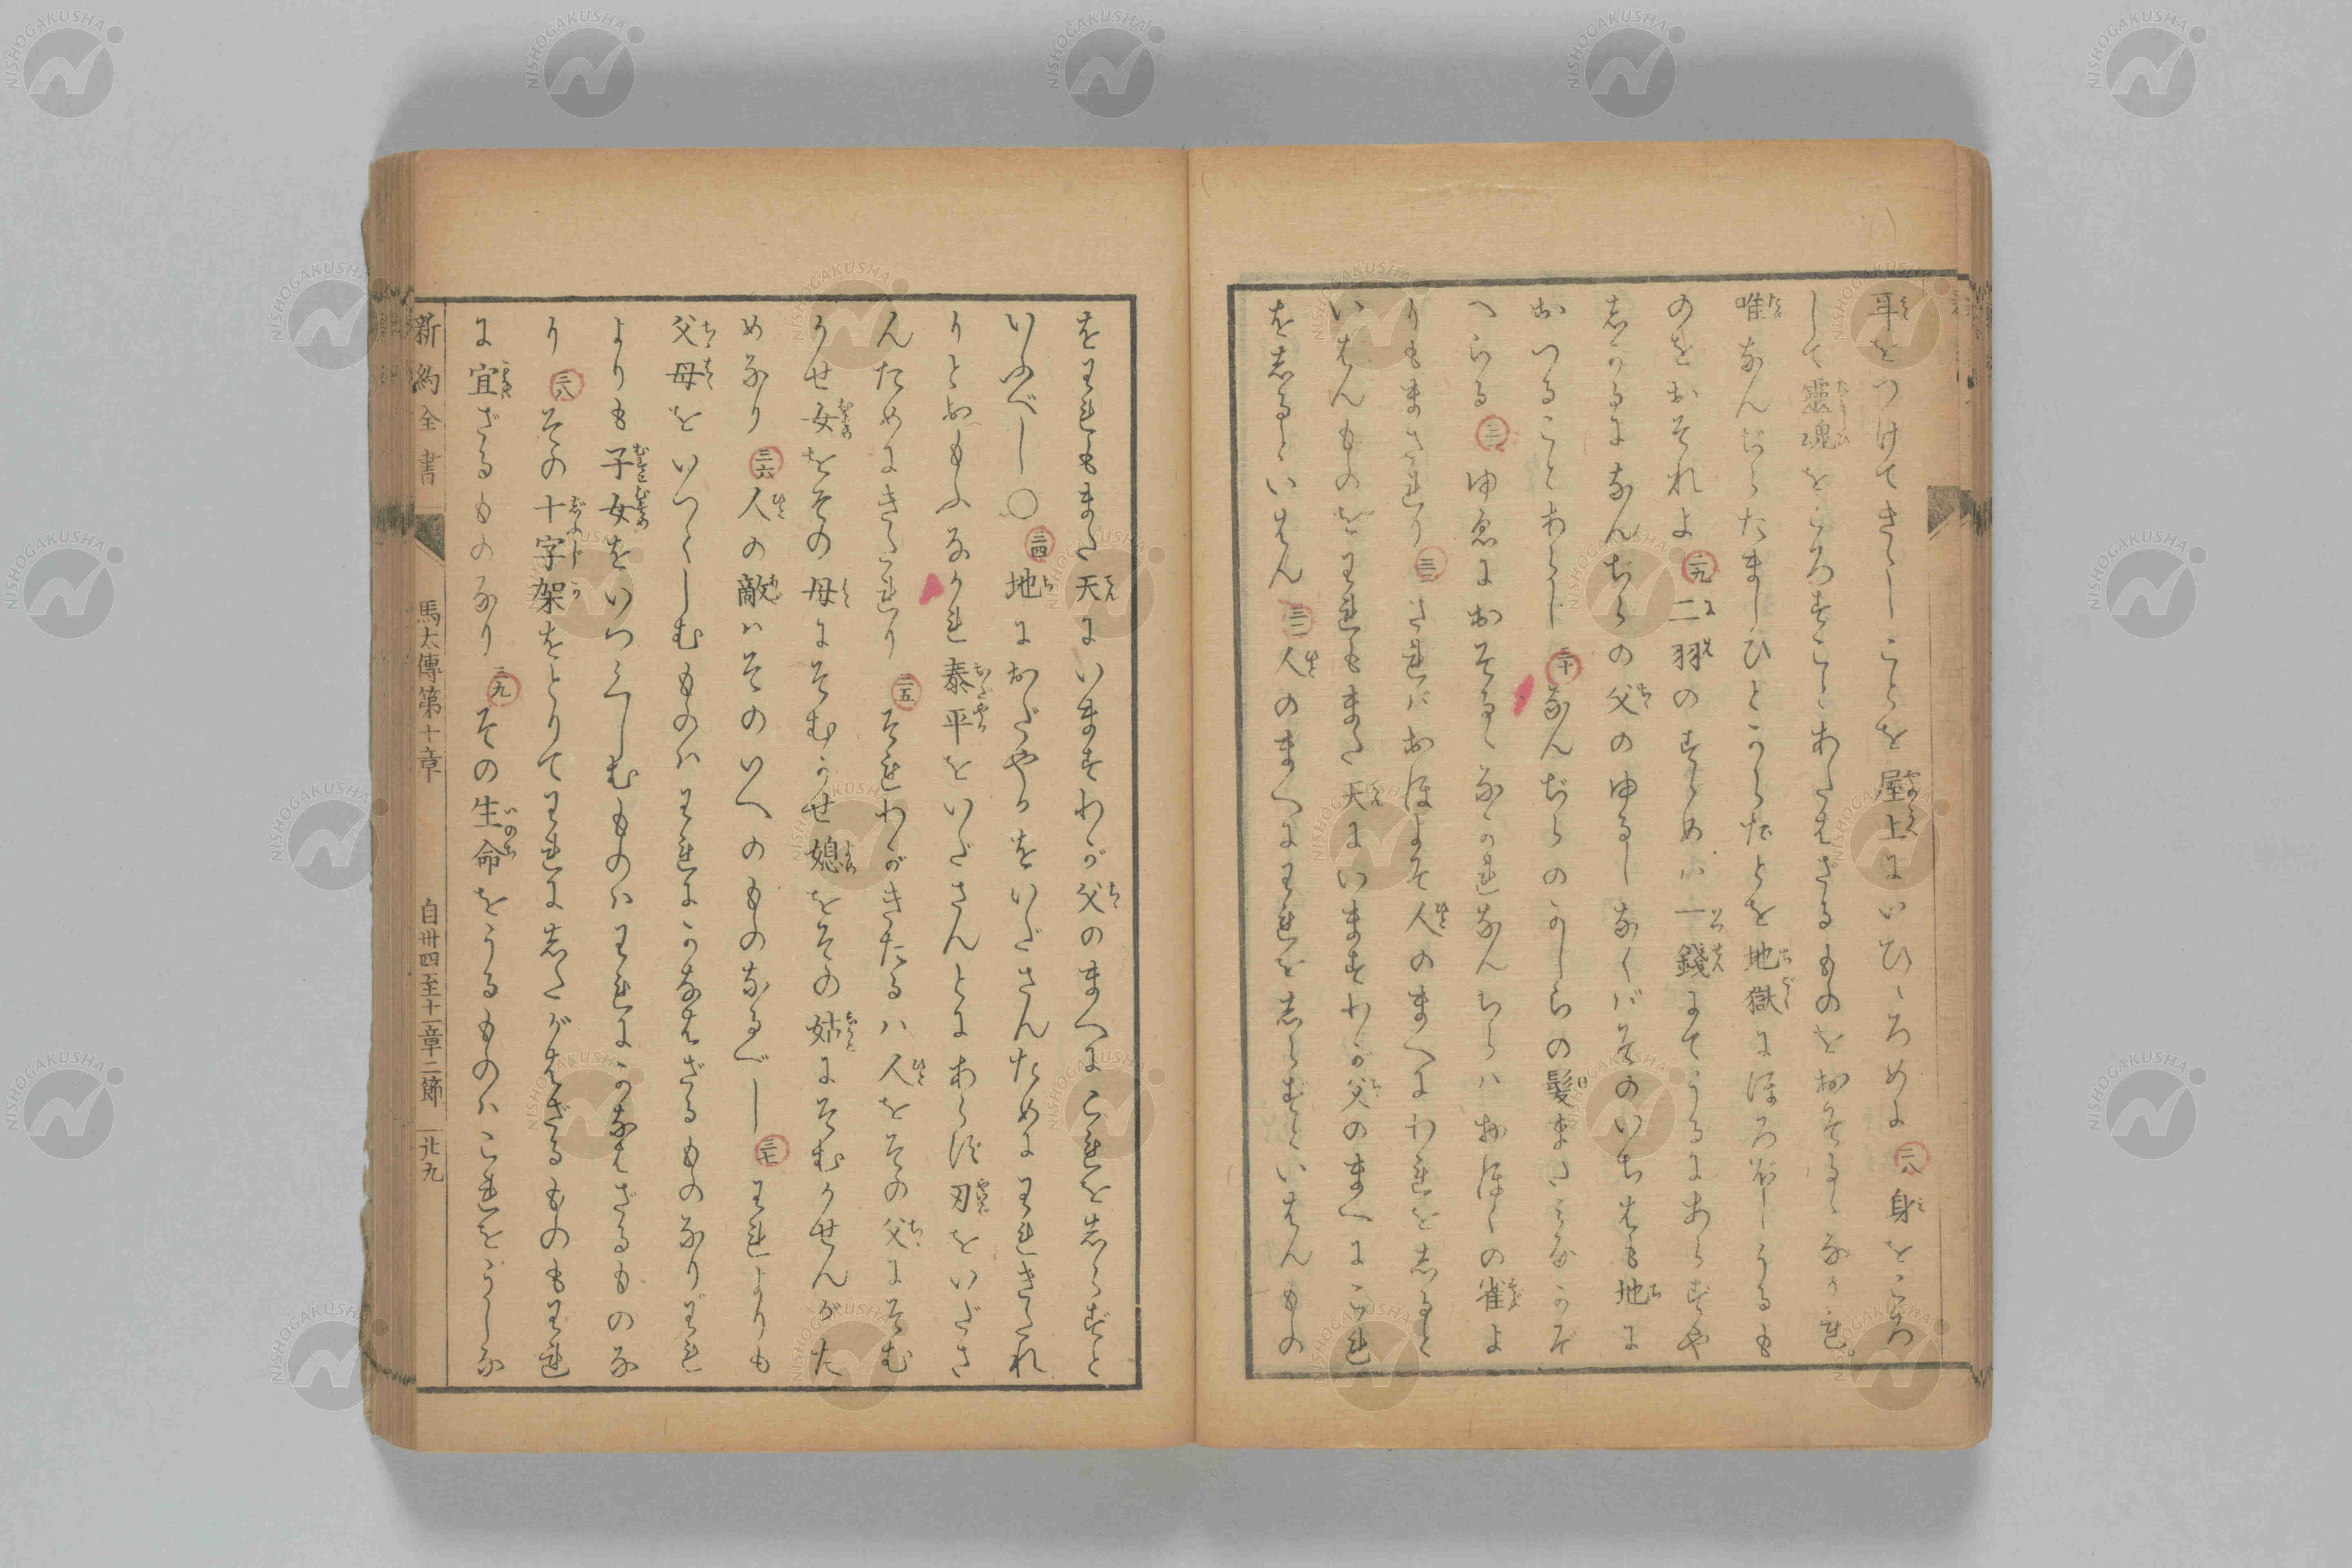 耳をつけてきゝしことを屋上にいひゝろめよ 二八 身をころ
して靈魂をころすことあたはざるものをおそるゝなかれ
唯なんぢらたましひとからだとを地獄にほろぼしうるも
のをおそれよ 二九 二羽のすゞめハ一錢にてうるにあらずや
しかるになんぢらの父のゆるしなくバそのいちはも地に
おつることあらじ 三十 なんぢらのかしらの髪またみなかぞ
へらる 三一 ゆゑにおそるゝなかれなんぢらハおほくの雀よ
りもまされり 三二 されバおほよそ人のまへにわれをしると
いはんものをわれもまた天にいますわが父のまへにこれ
をしるといはん 三三 人のまへにわれをしらずといはんもの
をわれもまた天にいますわが父のまへにこれをしらずと
いふべし〇 三四 地におだやかをいださんためにわれきたれ
りとおもふなかれ泰平をいださんとにあらず刃をいださ
んためにきたれり 三五 それわがきたるハ人をその父にそむ
かせ女をその母にそむかせ媳をその姑にそむかせんがた
めなり 三六 人の敵ハそのいへのものなるべし 三七 われよりも
父母をいつくしむものハわれにかなはざるものなりわれ
よりも子女をいつくしむものハわれにかなはざるものな
り 三八 その十字架をとりてわれにしたがはざるものもわれ
に宜ざるものなり 三九 その生命をうるものハこれをうしな
新約全書 馬太傳第十章 自卅四至十一章二節 廿九